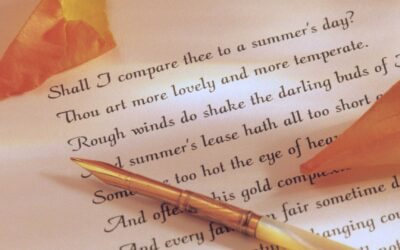 Shall I compare thee to a summer's day?
Thou art more lovely and more temperate.
Rough winds do shake the darling buds of
summer's lease hath all too short
too hot the eye of
And his gold
And every fair sometime
changing